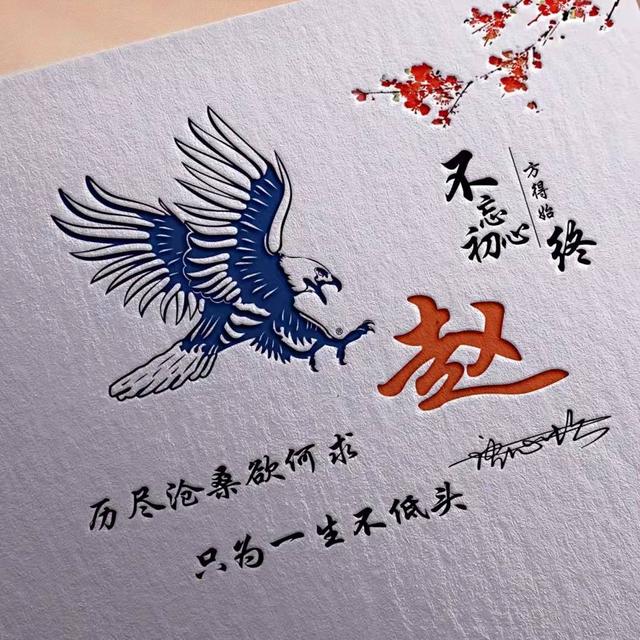 不忘初心
方得始终
赵
®
历尽沧桑欲何求
只为一生不低头